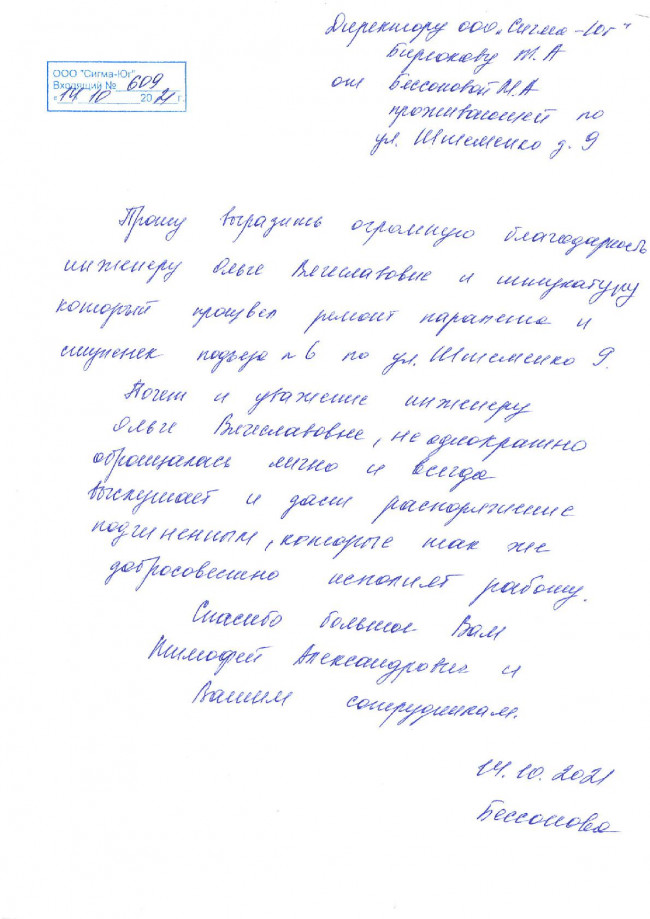 Директору ООО „Сигма-Юг"
Бирюкову Т.А
от Бессоновой М.А
проживающей по
ул. Штеменко д. 9
ООО "Сигма-Юг"
Входящий № 609
« 14 » 10 2021 г.
Прошу выразить огромную благодарность
инженеру Ольге Вячеславовне и штукатуру
который произвел ремонт парапета и
ступенек подъезд №6 по ул. Штеменко 9.
Почет и уважение инженеру
Ольге Вячеславовне, не однократно
обращалась лично и всегда
выслушает и даст распоряжение
подчиненным, которые так же
добросовестно исполнят работу.
Спасибо большое Вам
Тимофей Александрович и
Вашим сотрудникам.
14.10.2021
Бессонова